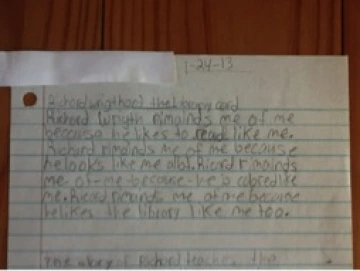 1-24-13
Richard wrigthand the library card
Richard Wright rimainds me of me
becausa he likes to read like me.
Richard rimainds me of me because
he looks like me allot. Ricard rimainds
me-of-me-because-he is colored like
me. Ricard rimainds me of me because
he likes the library like me too.
The story of Richard teaches tha